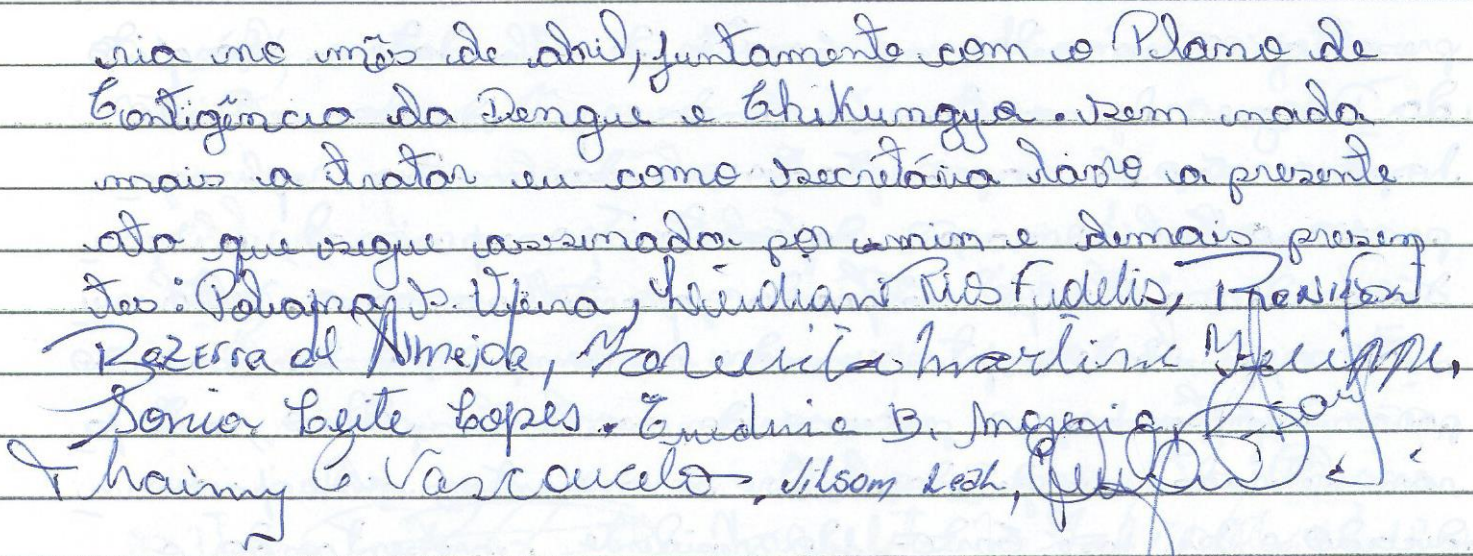 ria no mês de abril, juntamente com o Plano de
Contigência da Dengue e Chikungya. Sem nada
mais a tratar eu como secretária lavro a presente
ata que segue assinada por mim e demais presen
tes: S. Viena, Rios Fidelis,
Bezerra de Almeida, Martins Felippe,
Sonia Leite Lopes. B.
Thaimy C. Vasconcelos, Nilsom